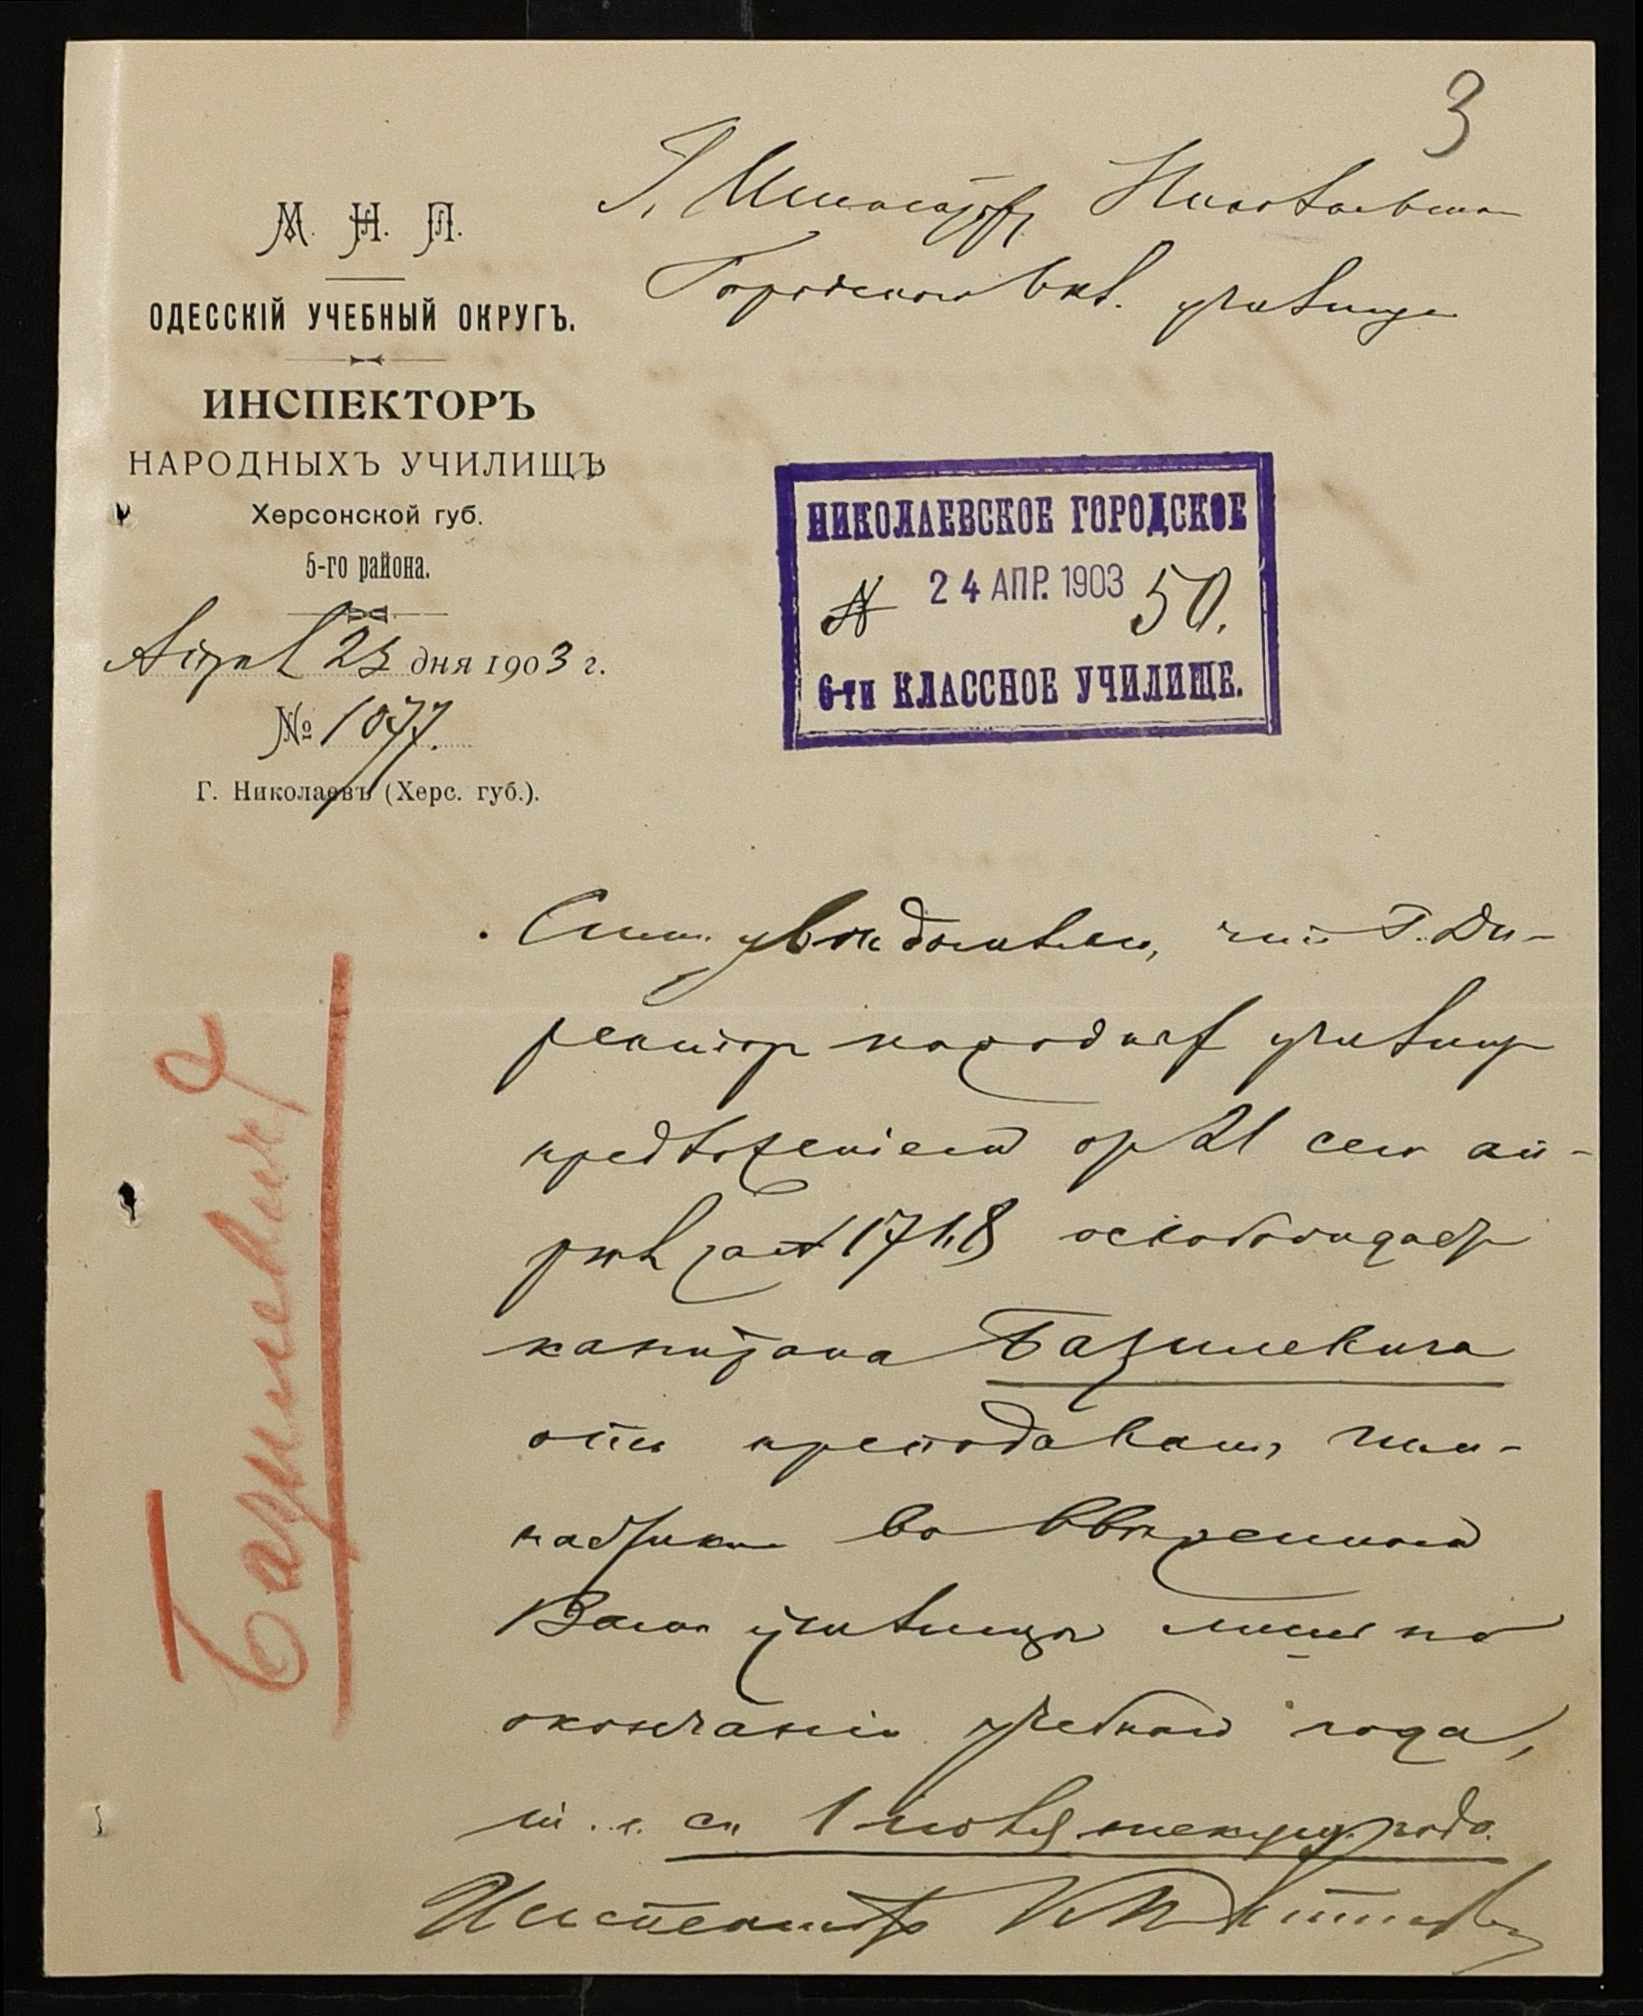 3
Г. Инспектору Николаевскаго
Городского 6 кл. училища
М. Н. П.
ОДЕССКІЙ УЧЕБНЫЙ ОКРУГЪ.
ИНСПЕКТОРЪ
НАРОДНЫХЪ УЧИЛИЩЪ
Херсонской губ.
5-го района.
Апрѣл 23 дня 1903 г.
№ 1077.
Г. Николаевъ (Херс. губ.).
НИКОЛАЕВСКОЕ ГОРОДСКОЕ
№ 24 АПР. 1903 50.
6-ти КЛАССНОЕ УЧИЛИЩЕ.
Симъ увѣдомляю, что Г. Ди-
ректоръ народныхъ училищъ
предложеніемъ отъ 21 сего ап-
рѣля за № 1718 освобождаетъ
капитана Базилевича
отъ преподаванія гим-
настики во ввѣренномъ
Вамъ училищѣ лишь по
окончаніи учебнаго года,
т. е. съ 1 іюля текущ. года.
Инспекторъ
Базилевичъ